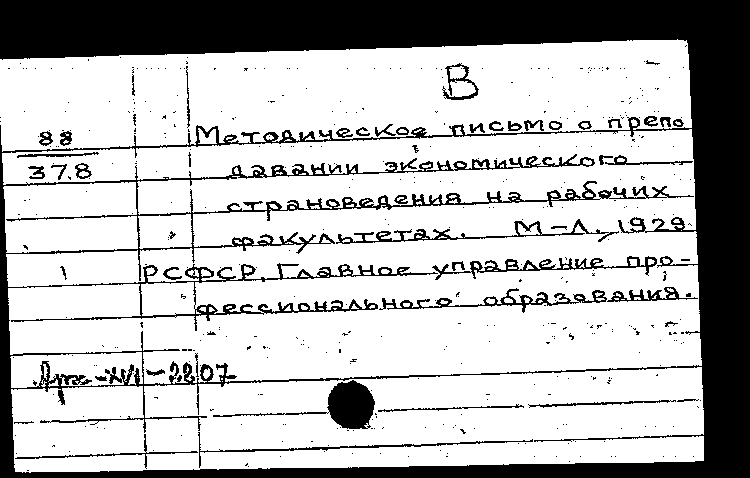 В
88
Методическое письмо о препо
37.8
давании экономического
страноведения на рабочих
факультетах. М-Л, 1929
1 РСФСР. Главное управление про-
фессионального образования.
Арх-XVI-2207